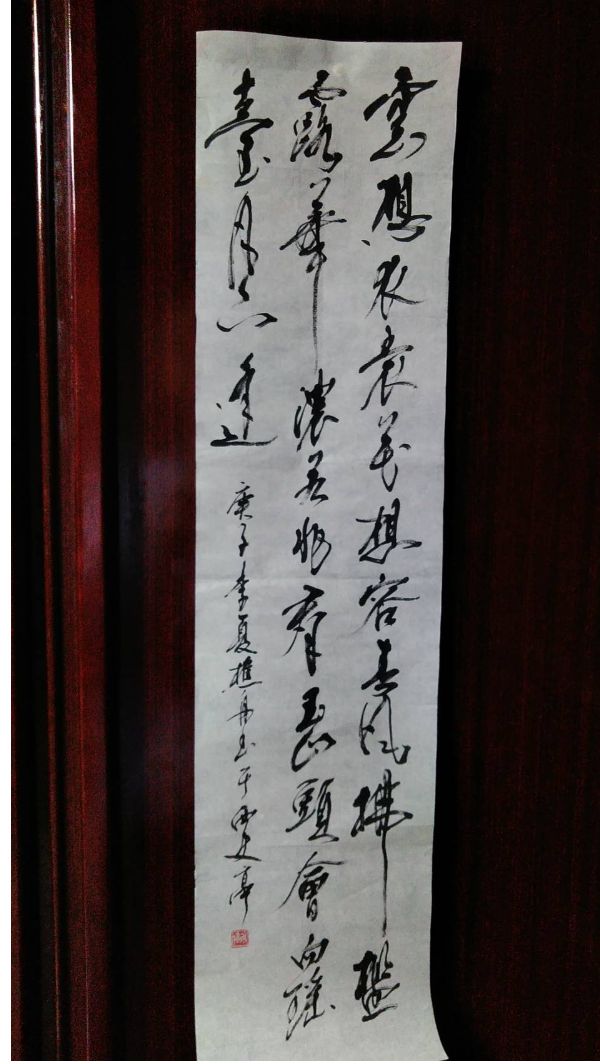 雲想衣裳花想容春風拂檻
露華濃若非群玉山頭會向瑤
臺月下逢
庚子季夏樵丹書于亭